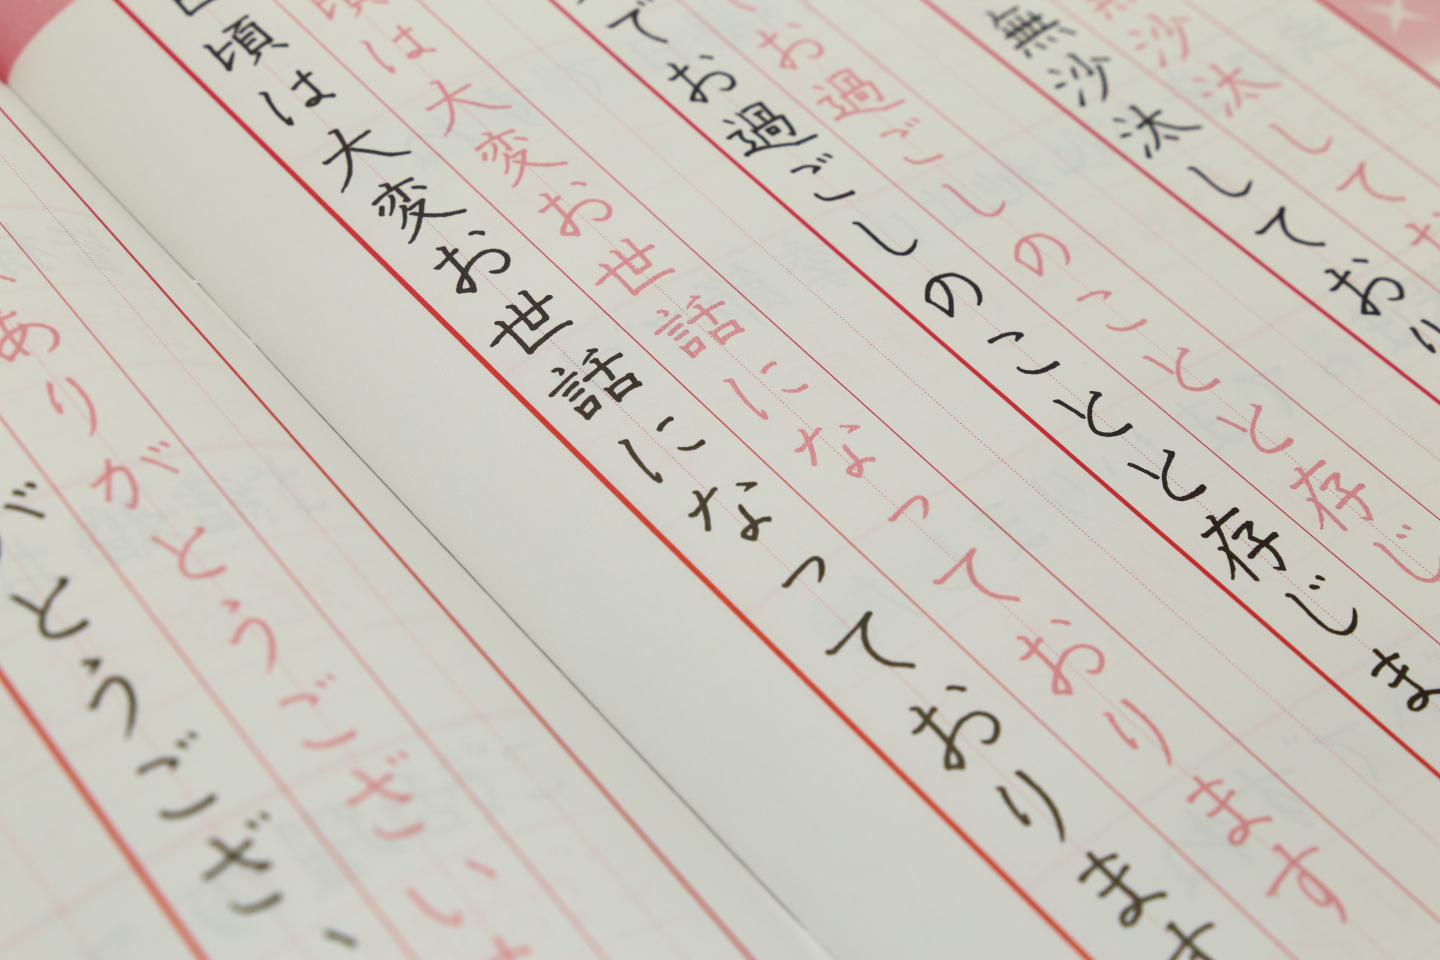 無沙汰してお
無沙汰しており
お過ごしのことと存じ
でお過ごしのことと存じま
頃は大変お世話になっております
日頃は大変お世話になっております
ありがとうございま
がとうござい